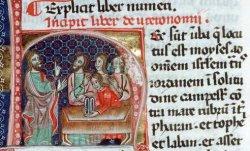 Explicit liber numeri.
Incipit liber deuteronomii.
Ec sūt uba q̄ loqu
tus est moyses a
omnem
iordanem ī solitu
dine campestri cō
tra mare rubrū it
pharam et tophe
et laban. et aser